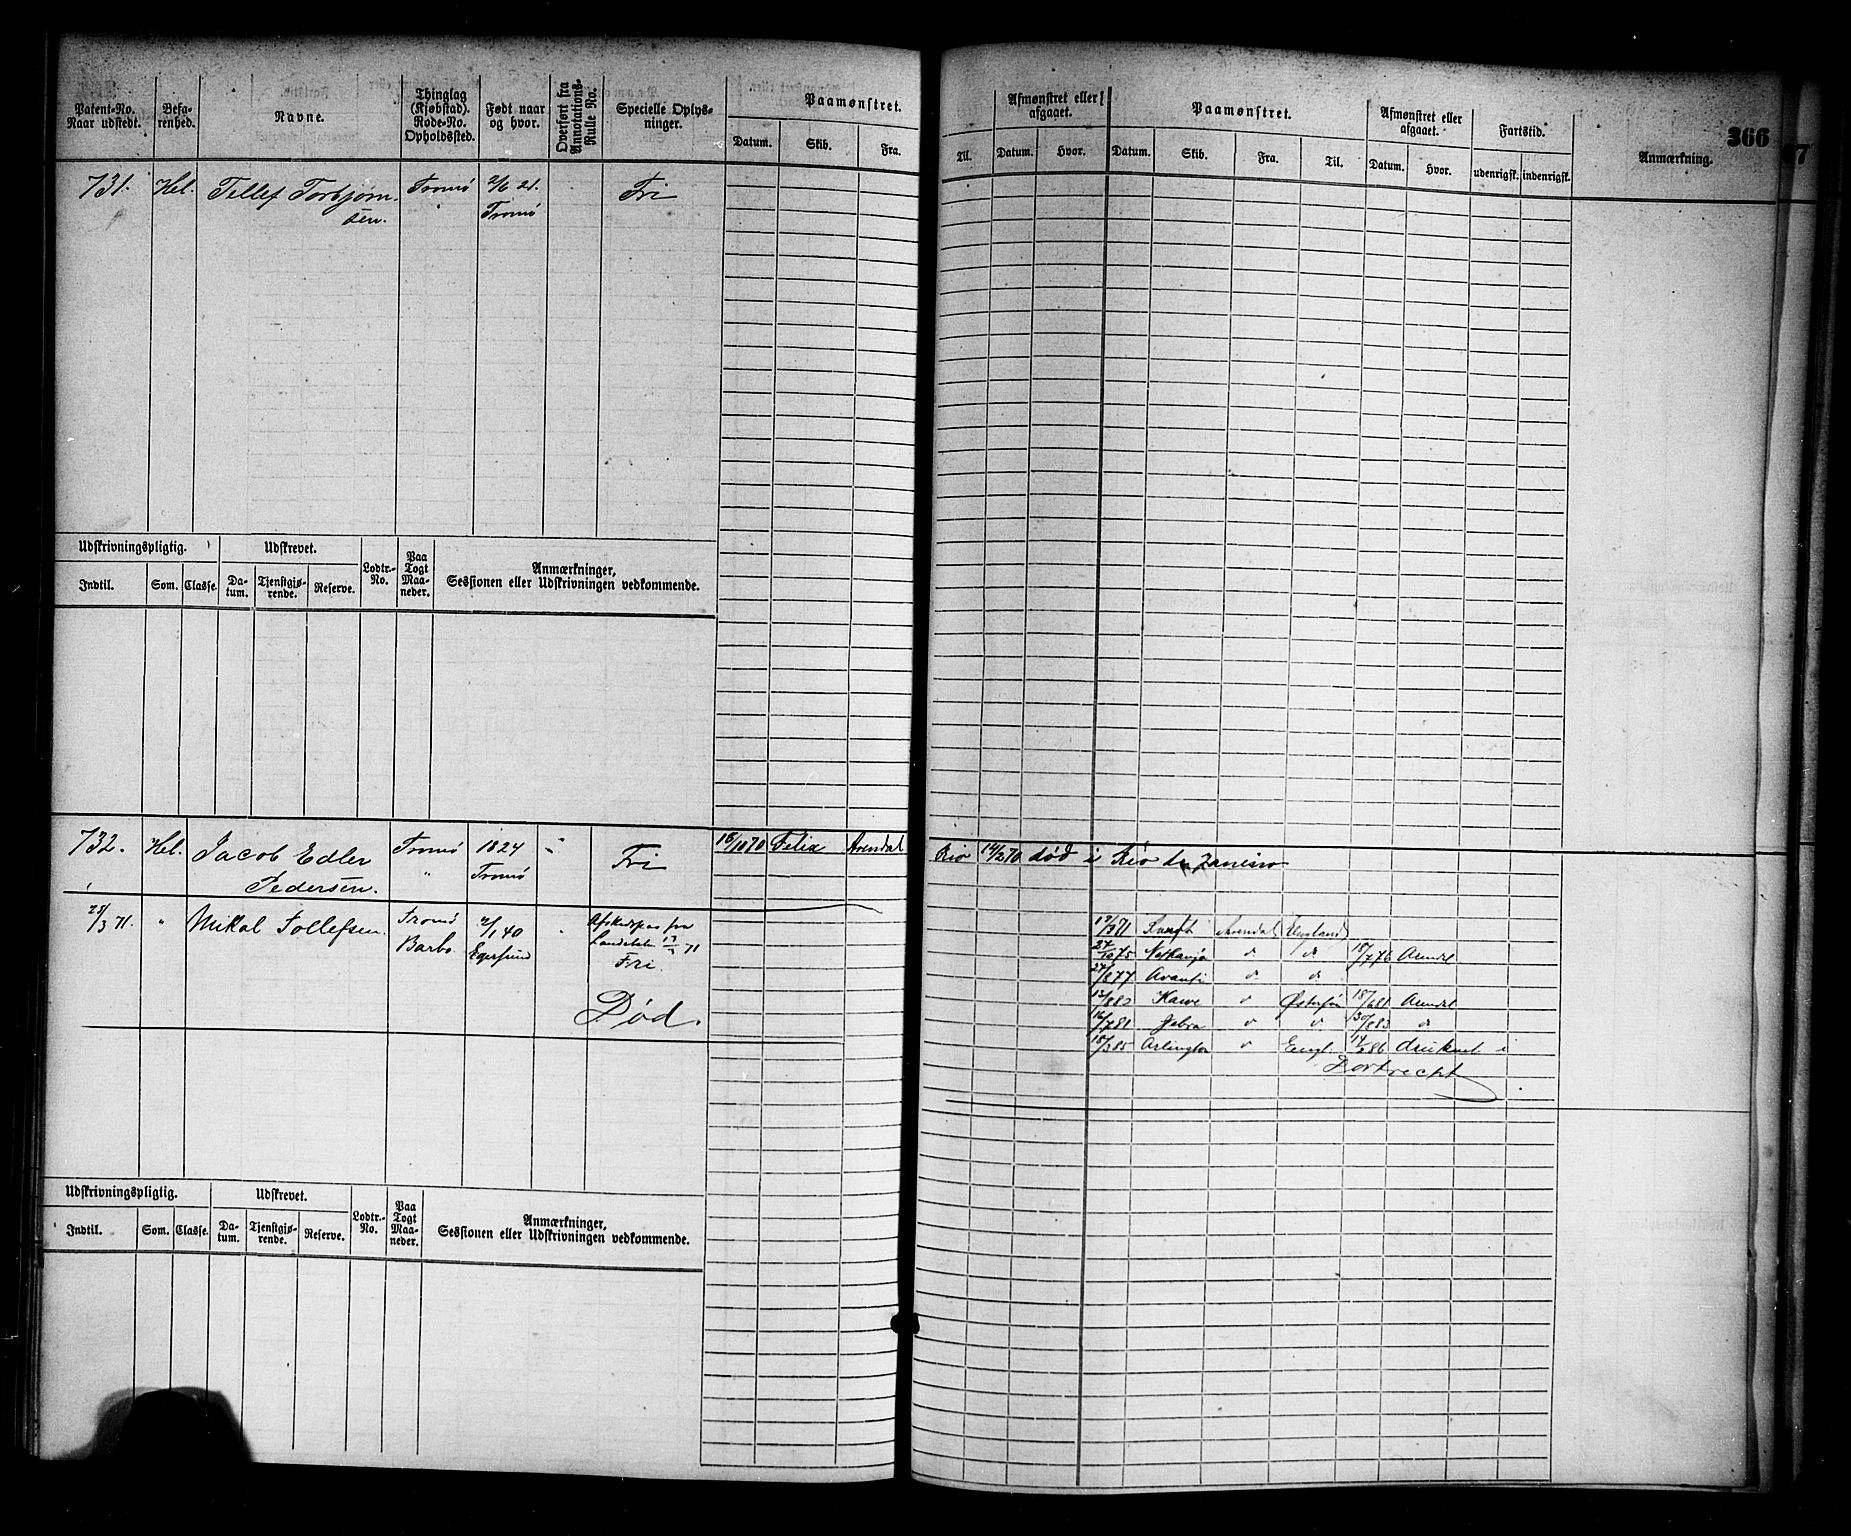 366
Patent-No. Naar udstedt.
Befarenhed.
Navne.
Thinglag (Kjøbstad). Rode-No. Opholdssted.
Født naar og hvor.
Overført fra Annotations-Rulle No.
Specielle Oplysninger.
Paamønstret.
Datum. Skib. Fra.
Til.
Afmønstret eller afgaaet.
Datum. Hvor.
Paamønstret.
Datum. Skib. Fra. Til.
Afmønstret eller afgaaet.
Datum. Hvor.
Fartstid.
udenrigsk. indenrigsk.
Anmærkning.
731. Hel. Tellef Torbjørn- Tromø 2/6 21. Fri
sen. Tromø
Udskrivningspligtig. Udskrevet. Lodtr.-No. Paa Togt Maaneder. Anmærkninger,
Indtil. Som. Classe. Datum. Tjenstgjørende. Reserve. Sessionen eller Udskrivningen vedkommende.
732. Hel. Jacob Edler Tromø 1824 Fri 18/10 70 Felix Arendal Rio 14/2 70 død i Rio de Janeiro
Pedersen. " Tromø
28/3 71. " Mikal Tollefsen Tromø 2/1 40 Afskedspas fra
Barbo Egersund Landetaten 13/ 71
Fri.
Død.
17/3 71 Arendal England
27/ 75 d d 18/7 76 Arendl
27/ 77 Avanti d d
13/8 80 d Østersjøn 18/6 81 Arendl
16/7 81 Zebra d d 30/8 83 d
18/3 85 Arlington d Engl. 14/ 86 druknet i
Dortrecht
Udskrivningspligtig. Udskrevet. Lodtr.-No. Paa Togt Maaneder. Anmærkninger,
Indtil. Som. Classe. Datum. Tjenstgjørende. Reserve. Sessionen eller Udskrivningen vedkommende.